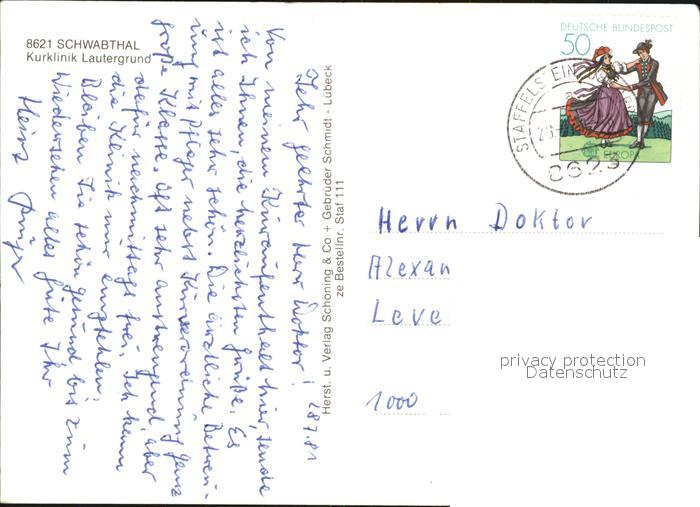 8621 SCHWABTHAL
Kurklinik Lautergrund
Sehr geehrter Herr Doktor! 28.7.81
Von meinem Kuraufenthalt hier, sende
ich Ihnen, die herzlichsten Grüße. Es
ist alles sehr schön. Die ärztliche Betreu-
ung mit Pfleger nebst Kuranordnung ganz
große Klasse. Oft sehr anstrengend, aber
dafür nachmittags frei. Ich kann
die Klinik nur empfehlen.
Bleiben Sie schön gesund bis zum
Wiedersehen alles Gute Ihr
Heinz
Herst. u. Verlag Schöning & Co + Gebrüder Schmidt - Lübeck
ze Bestellnr. Staf 111
DEUTSCHE BUNDESPOST
50
EUROPA
STAFFELSTEIN
8623
Herrn Doktor
Alexan
Leve
privacy protection
Datenschutz
1000